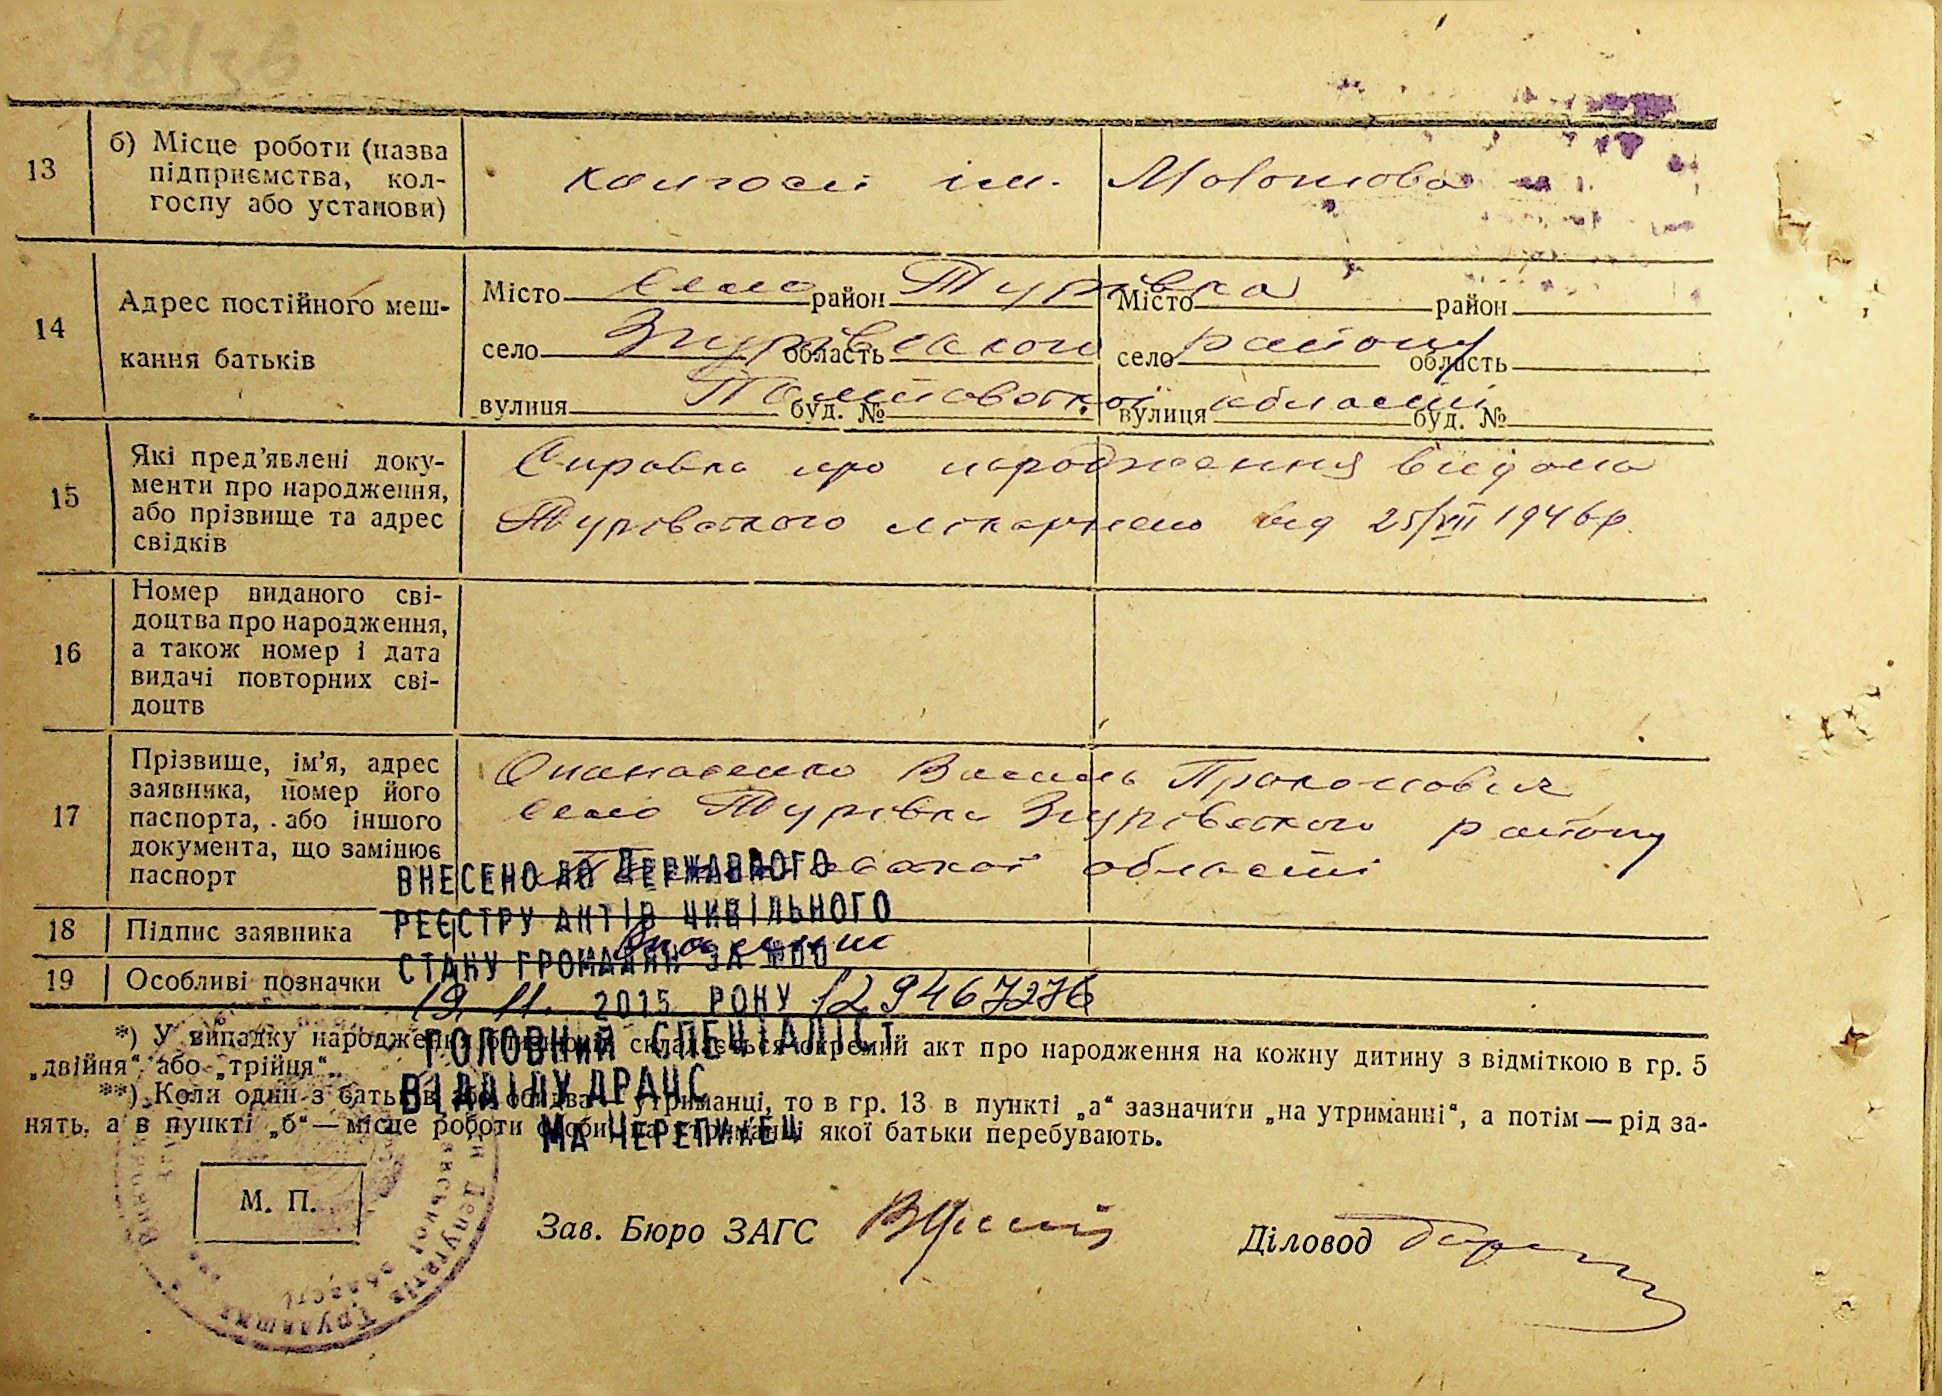 13
б) Місце роботи (назва
підприємства, кол-
госпу або установи)
колгосп ім. Молотова
14
Адрес постійного меш-
кання батьків
Місто село район Турівка Місто район
село Згурівського область село району область
вулиця Полтавської буд. № вулиця області буд. №
15
Які пред’явлені доку-
менти про народження,
або прізвище та адрес
свідків
Справка про народження видана
Турівського лікарнею від 25/VII 1946 р.
16
Номер виданого сві-
доцтва про народження,
а також номер і дата
видачі повторних сві-
доцтв
17
Прізвище, ім’я, адрес
заявника, номер його
паспорта, або іншого
документа, що замінює
паспорт
Опанасенко Василь Прокопович
село Турівка Згурівського району
Полтавської області
18
Підпис заявника
19
Особливі позначки
ВНЕСЕНО ДО ДЕРЖАВНОГО
РЕЄСТРУ АКТІВ ЦИВІЛЬНОГО
СТАНУ ГРОМАДЯН ЗА №00
19. 11. 2015 РОКУ 129467276
ГОЛОВНИЙ СПЕЦІАЛІСТ
ВІДДІЛУ ДРАЦС
МА ЧЕРЕПИНЕЦЬ
*) У випадку народження складається окремий акт про народження на кожну дитину з відміткою в гр. 5
„двійня“ або „трійця“.
**) Коли один з батьків або обидва утриманці, то в гр. 13 в пункті „а“ зазначити „на утриманні“, а потім — рід за-
нять, а в пункті „б“ — місце роботи особи, на утриманні якої батьки перебувають.
М. П.
Депутатів Трудящих
області
Зав. Бюро ЗАГС
Діловод